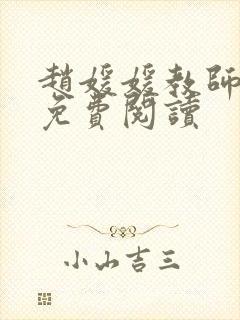 趙媛媛教師
免費閱讀
小山吉三